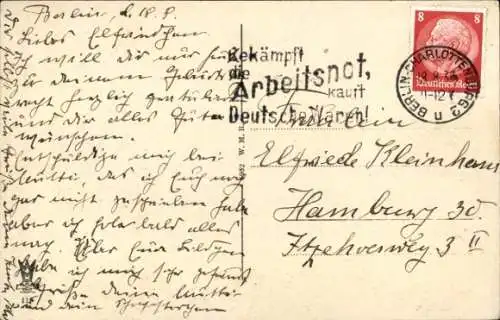 Berlin, d. 18. 8.
Liebes Elfriedchen!
Ich will dir nur
zu deinem Geburts
recht herzlich gratulieren
und dir alles Gute
wünschen.
Entschuldige mich bei
Mutti, das ich Euch
gar nicht geschrieben habe
aber ich hole bald alles
nach. Über Eure
habe ich mich sehr gefreut
Grüße deine Mutti
und dein
Bekämpft
die
Arbeitsnot,
kauft
Deutsche Waren!
8 8
Deutsches Reich
BERLIN-CHARLOTTENBURG 2
11-12
Fräulein
Elfriede Kleinhans
Hamburg 30.
Itzehoerweg 3 II
W. M. B.